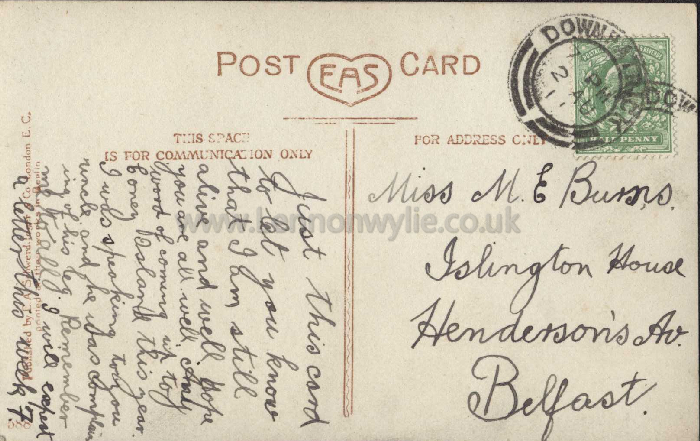 POST EAS CARD
DOWN
THIS SPACE
IS FOR COMMUNICATION ONLY
FOR ADDRESS ONLY
HALF PENNY
Just this card
to let you know
that I am still
alive and well hope
you are all well. Any
word of coming up to
this year.
I was speaking to you
uncle and he was complain
ing of his leg. Remember
me to all. I will expect
a letter this week
Miss M. E Burns.
Islington House
Henderson's Av.
Belfast.
www.lennonwylie.co.uk
London E. C.